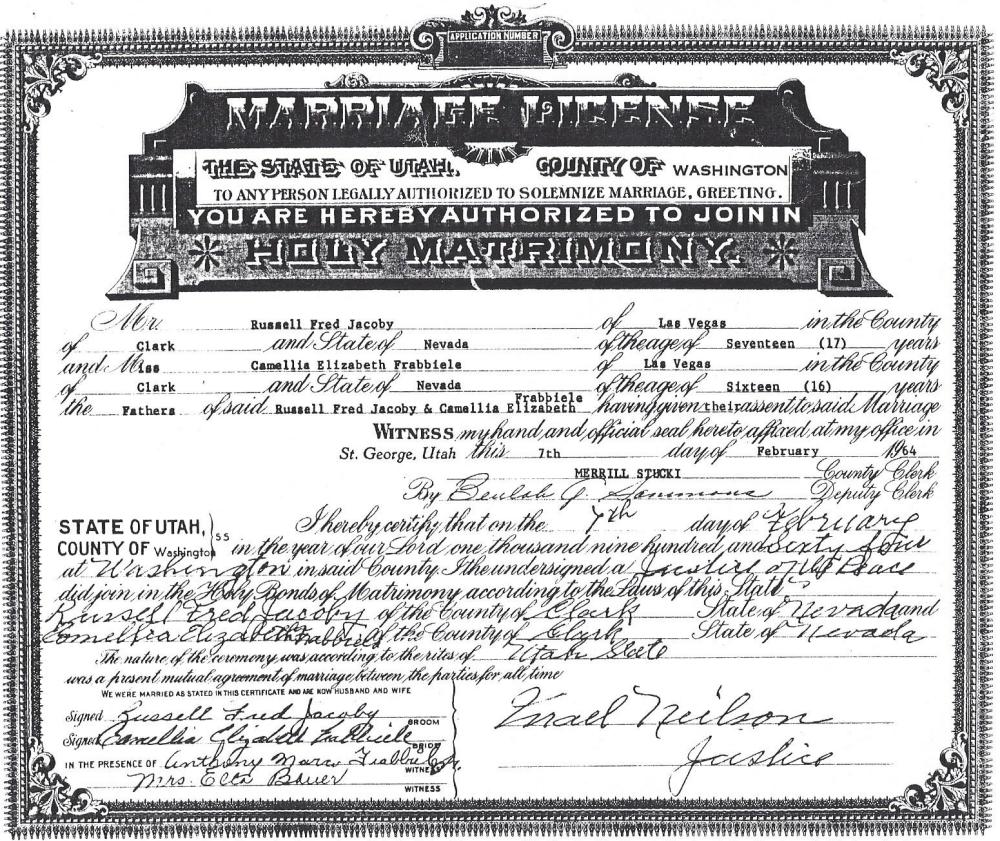 APPLICATION NUMBER
MARRIAGE LICENSE
THE STATE OF UTAH, COUNTY OF WASHINGTON
TO ANY PERSON LEGALLY AUTHORIZED TO SOLEMNIZE MARRIAGE, GREETING.
YOU ARE HEREBY AUTHORIZED TO JOIN IN
HOLY MATRIMONY.
Mr. Russell Fred Jacoby of Las Vegas in the County
of Clark and State of Nevada of the age of Seventeen (17) years
and Miss Camellia Elizabeth Frabbiele of Las Vegas in the County
of Clark and State of Nevada of the age of Sixteen (16) years
the Fathers of said Russell Fred Jacoby & Camellia Elizabeth Frabbiele having given their assent to said Marriage
WITNESS my hand and official seal hereto affixed at my office in
St. George, Utah this 7th day of February 1964
MERRILL STUCKI County Clerk
By Beulah G. Sammons Deputy Clerk
STATE OF UTAH, COUNTY OF Washington ss
I hereby certify that on the 7th day of February
in the year of our Lord one thousand nine hundred and Sixty four
at Washington in said County I the undersigned a Justice of the Peace
did join in the Holy Bonds of Matrimony according to the Laws of this State
Russell Fred Jacoby of the County of Clark State of Nevada and
Camellia Elizabeth Frabbiele of the County of Clark State of Nevada
The nature of the ceremony was according to the rites of Utah State
was a present mutual agreement of marriage between the parties for all time
WE WERE MARRIED AS STATED IN THIS CERTIFICATE AND ARE NOW HUSBAND AND WIFE
Signed Russell Fred Jacoby GROOM
Signed Camellia Elizabeth Frabbiele BRIDE
IN THE PRESENCE OF Anthony Marco Frabbiele Jr. WITNESS
Mrs. Etta Bauer WITNESS
Israel Neilson
Justice